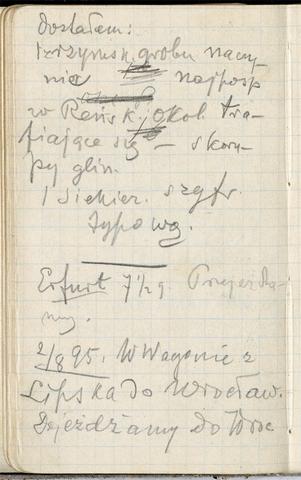 Dostałem:
trzymsk. grobu naczy-
nia najposp
w Reńsk. okol. tra-
fiające się — skoru-
py glin.
1 siekier. szgfr.
typową.
Erfurt 7 1/2 g. Przejeżdża-
my.
2/8 95. W Wagonie z
Lipska do Wrocław.
Dojeżdżamy do Wroc.